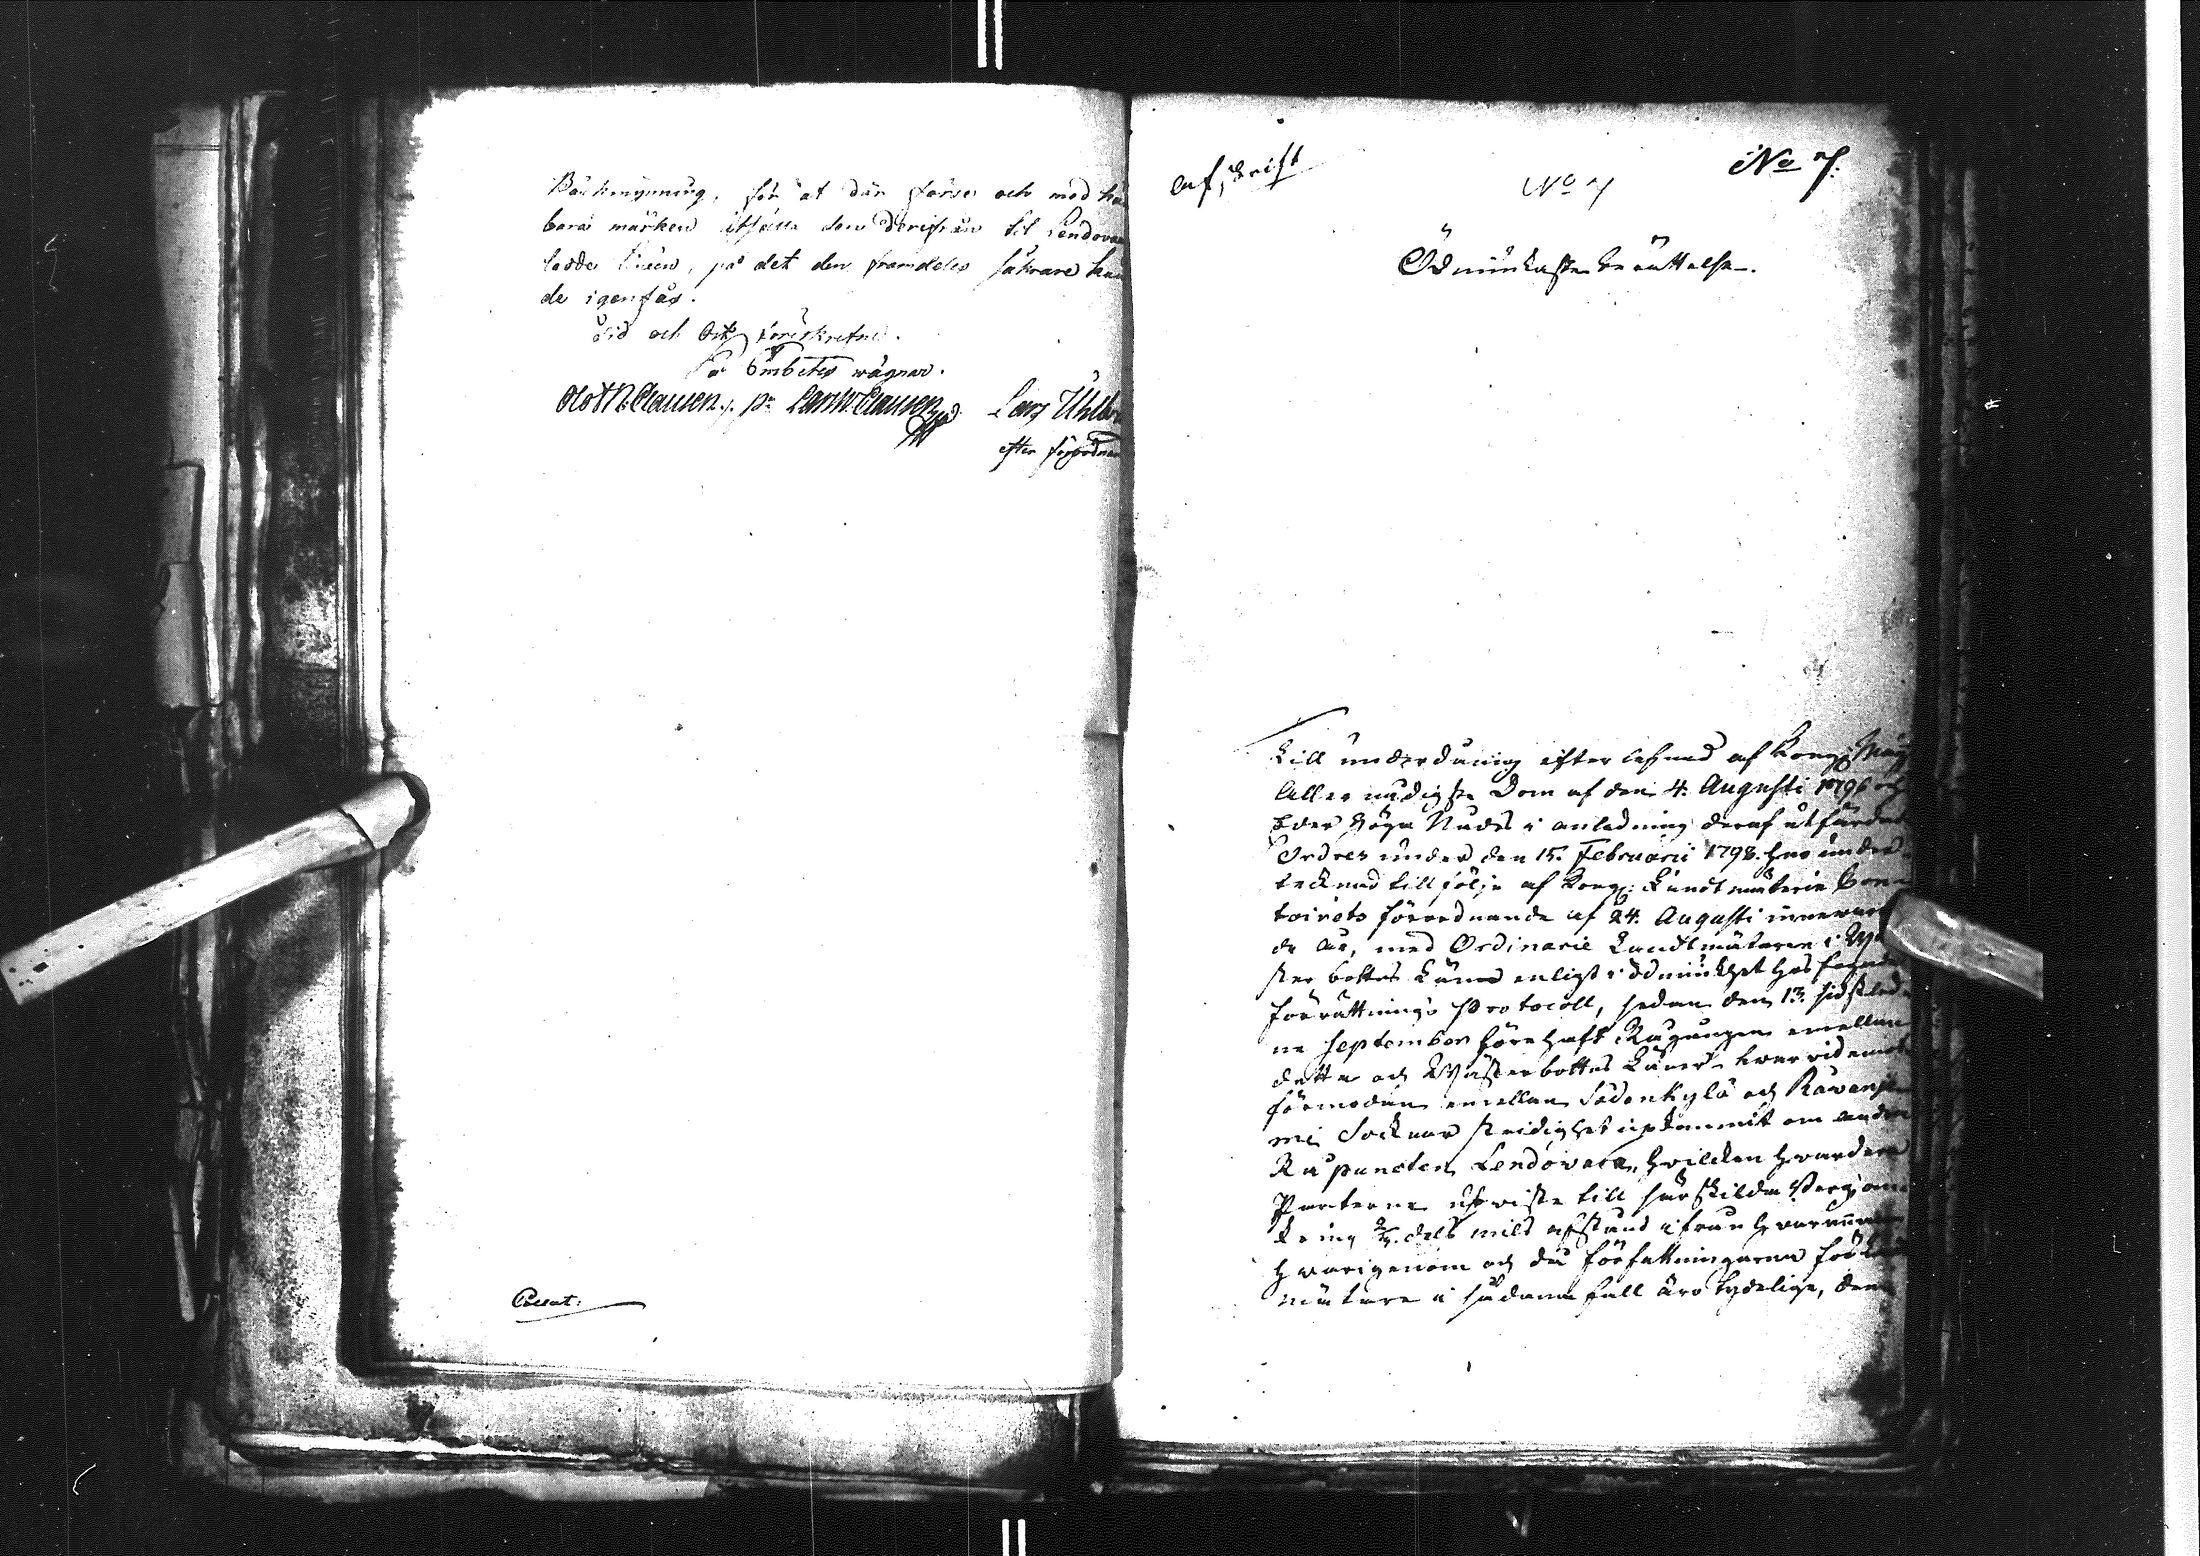 Bäckmynning, för at där förse och med
bara märken utstaka den derifrån til Lendova
ledde linien, på det den framdeles säkrare
de igenfås.
Tid och Ort förrskrefne.
På Embetes wägnar.
Olof N. Clausen. pr Lars W. Clausen Lars Uhlbr
efter förordnan
Collat:
Afskrift
No 7
No 7.
Ödmiukaste berättelse.
Till underdånig efterlefnad af Kongl: Maj
Aller nådigste Dom af den 4. Augusti 1796 och
Eder Höga Nåds i anledning deraf utfärdat
Ordres under den 15. Februarii 1798. har under
tecknad till följe af Kongl: Landtmäterie Con
toirets förordnande af 24. Augusti innewar
de år, med Ordinarie Landtmätaren i We
ster bottns Länn enligt i ödmiukhet hos
förrättnings Protocoll, sedan den 13. sidstled
ne September förehaft Rågången emellan
detta och Wästerbottns Länn, hwarwid emot
förmodan emellan Sodankylä och Rawanje
mi Socknar stridighet upkommit om andra
Rå puncten Lendovara, hwilcken hwardera
Parterne utwiste till särskilda Berg, om
kring 2/4. dels mils afstånd ifrån hwarannan
hwarigenom och då författningarne för Land
mätare i sådana fall äro tydelige, den